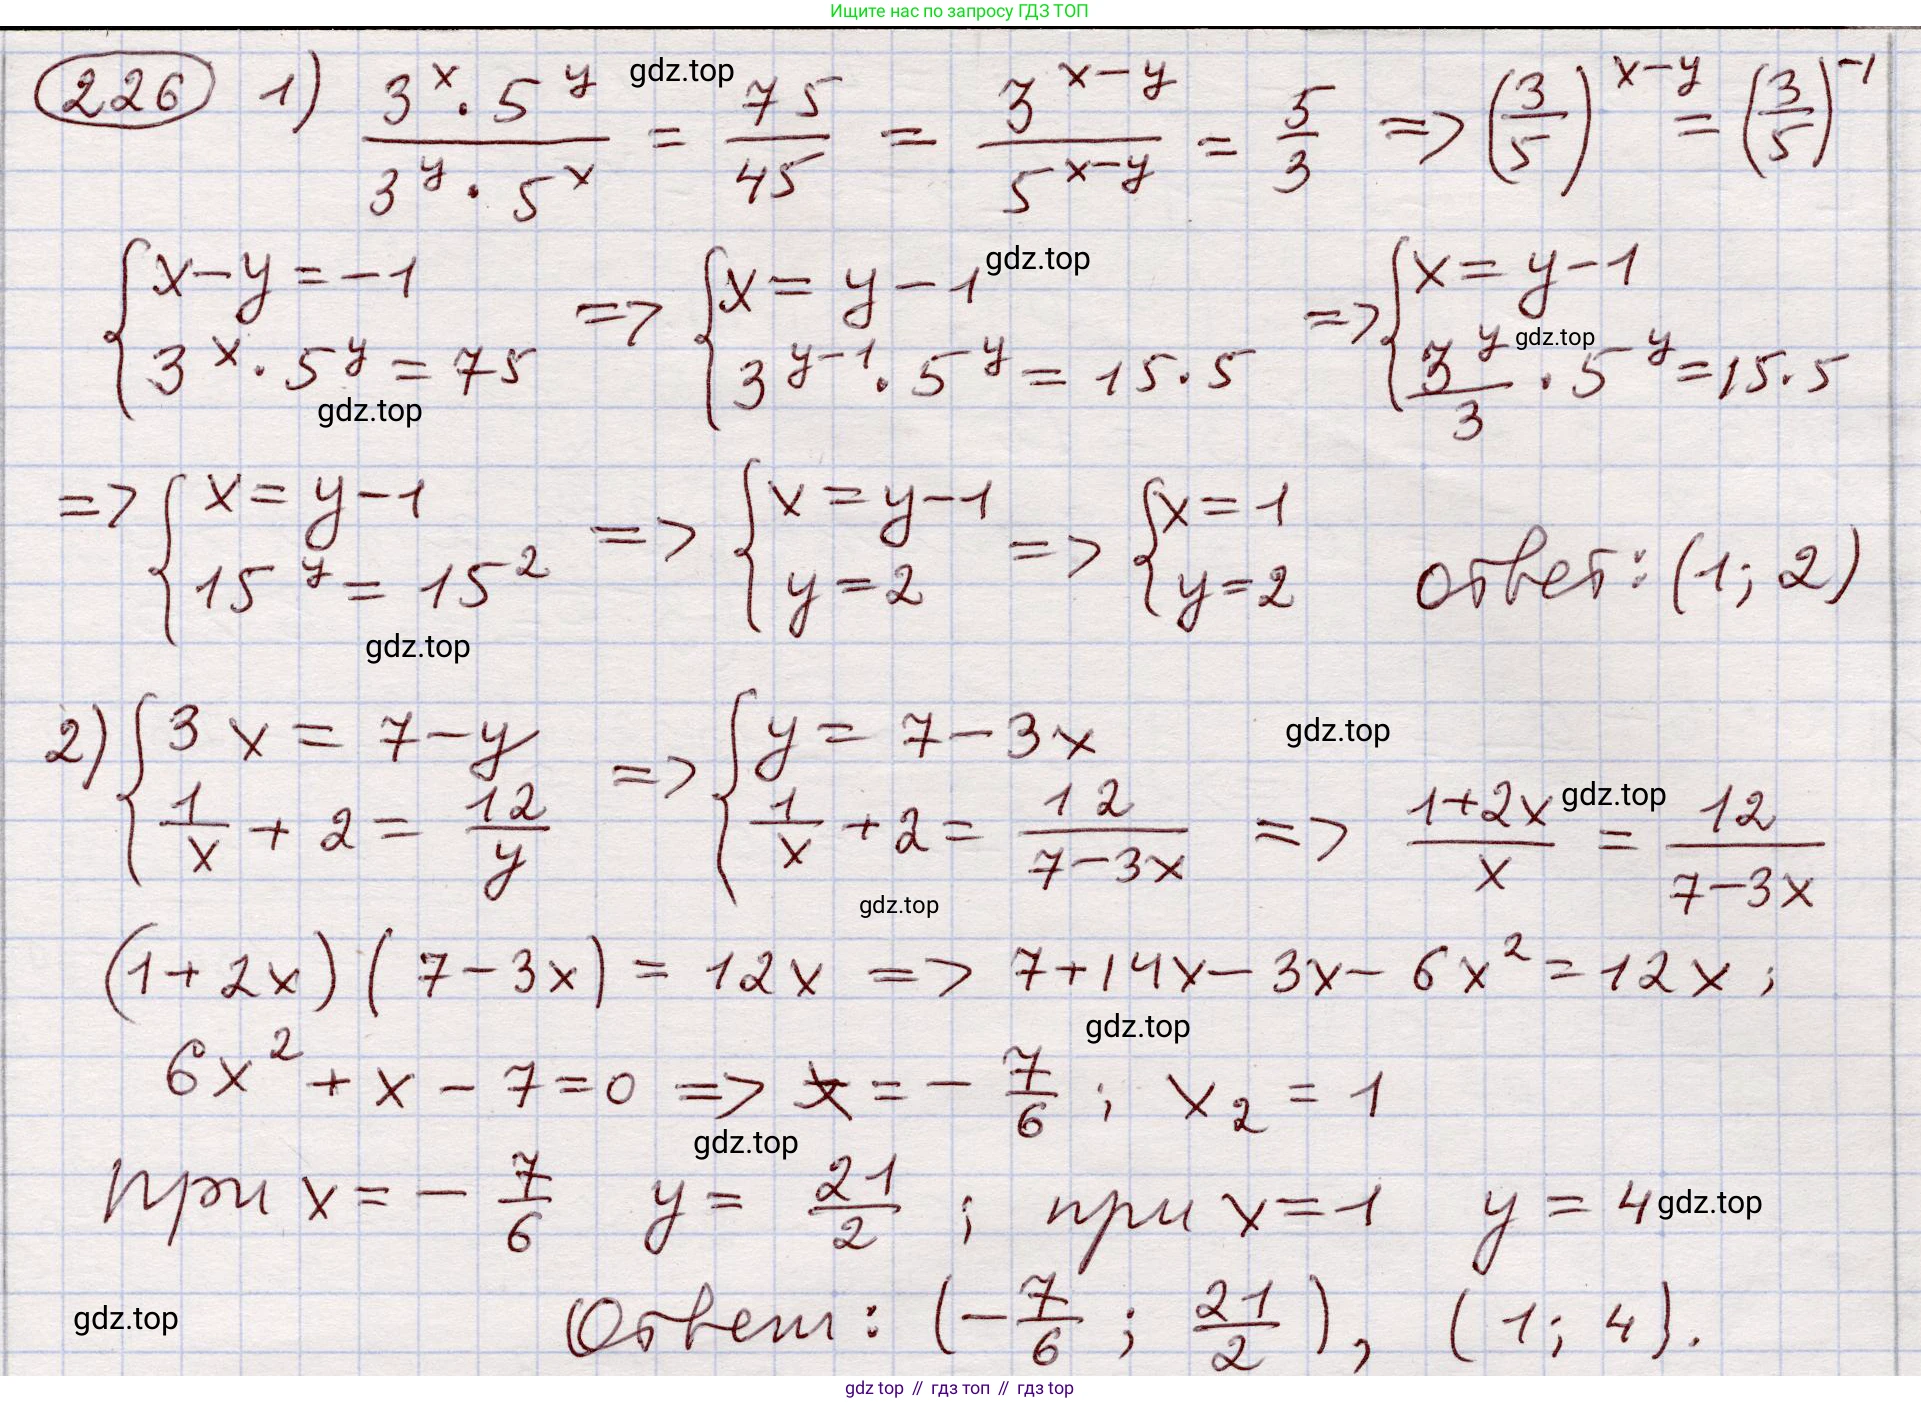 Ищите нас по запросу ГДЗ ТОП
226 1) (3^x · 5^y)/(3^y · 5^x) = 75/45 = 3^(x-y)/5^(x-y) = 5/3 => (3/5)^(x-y) = (3/5)^(-1)
gdz.top
{ x-y = -1; 3^x · 5^y = 75 => { x = y-1; 3^(y-1) · 5^y = 15·5 => { x = y-1; 3^y/3 · 5^y = 15·5
gdz.top
gdz.top
gdz.top
=> { x = y-1; 15^y = 15^2 => { x = y-1; y = 2 => { x = 1; y = 2 ответ: (1; 2)
gdz.top
2) { 3x = 7-y; 1/x + 2 = 12/y => { y = 7-3x; 1/x + 2 = 12/(7-3x) => (1+2x)/x = 12/(7-3x)
gdz.top
gdz.top
gdz.top
(1+2x)(7-3x) = 12x => 7+14x-3x-6x^2 = 12x;
gdz.top
6x^2 + x - 7 = 0 => x = -7/6; x_2 = 1
gdz.top
при x = -7/6 y = 21/2; при x = 1 y = 4
gdz.top
Ответ: (-7/6; 21/2), (1; 4).
gdz.top
gdz top // гдз топ // гдз top